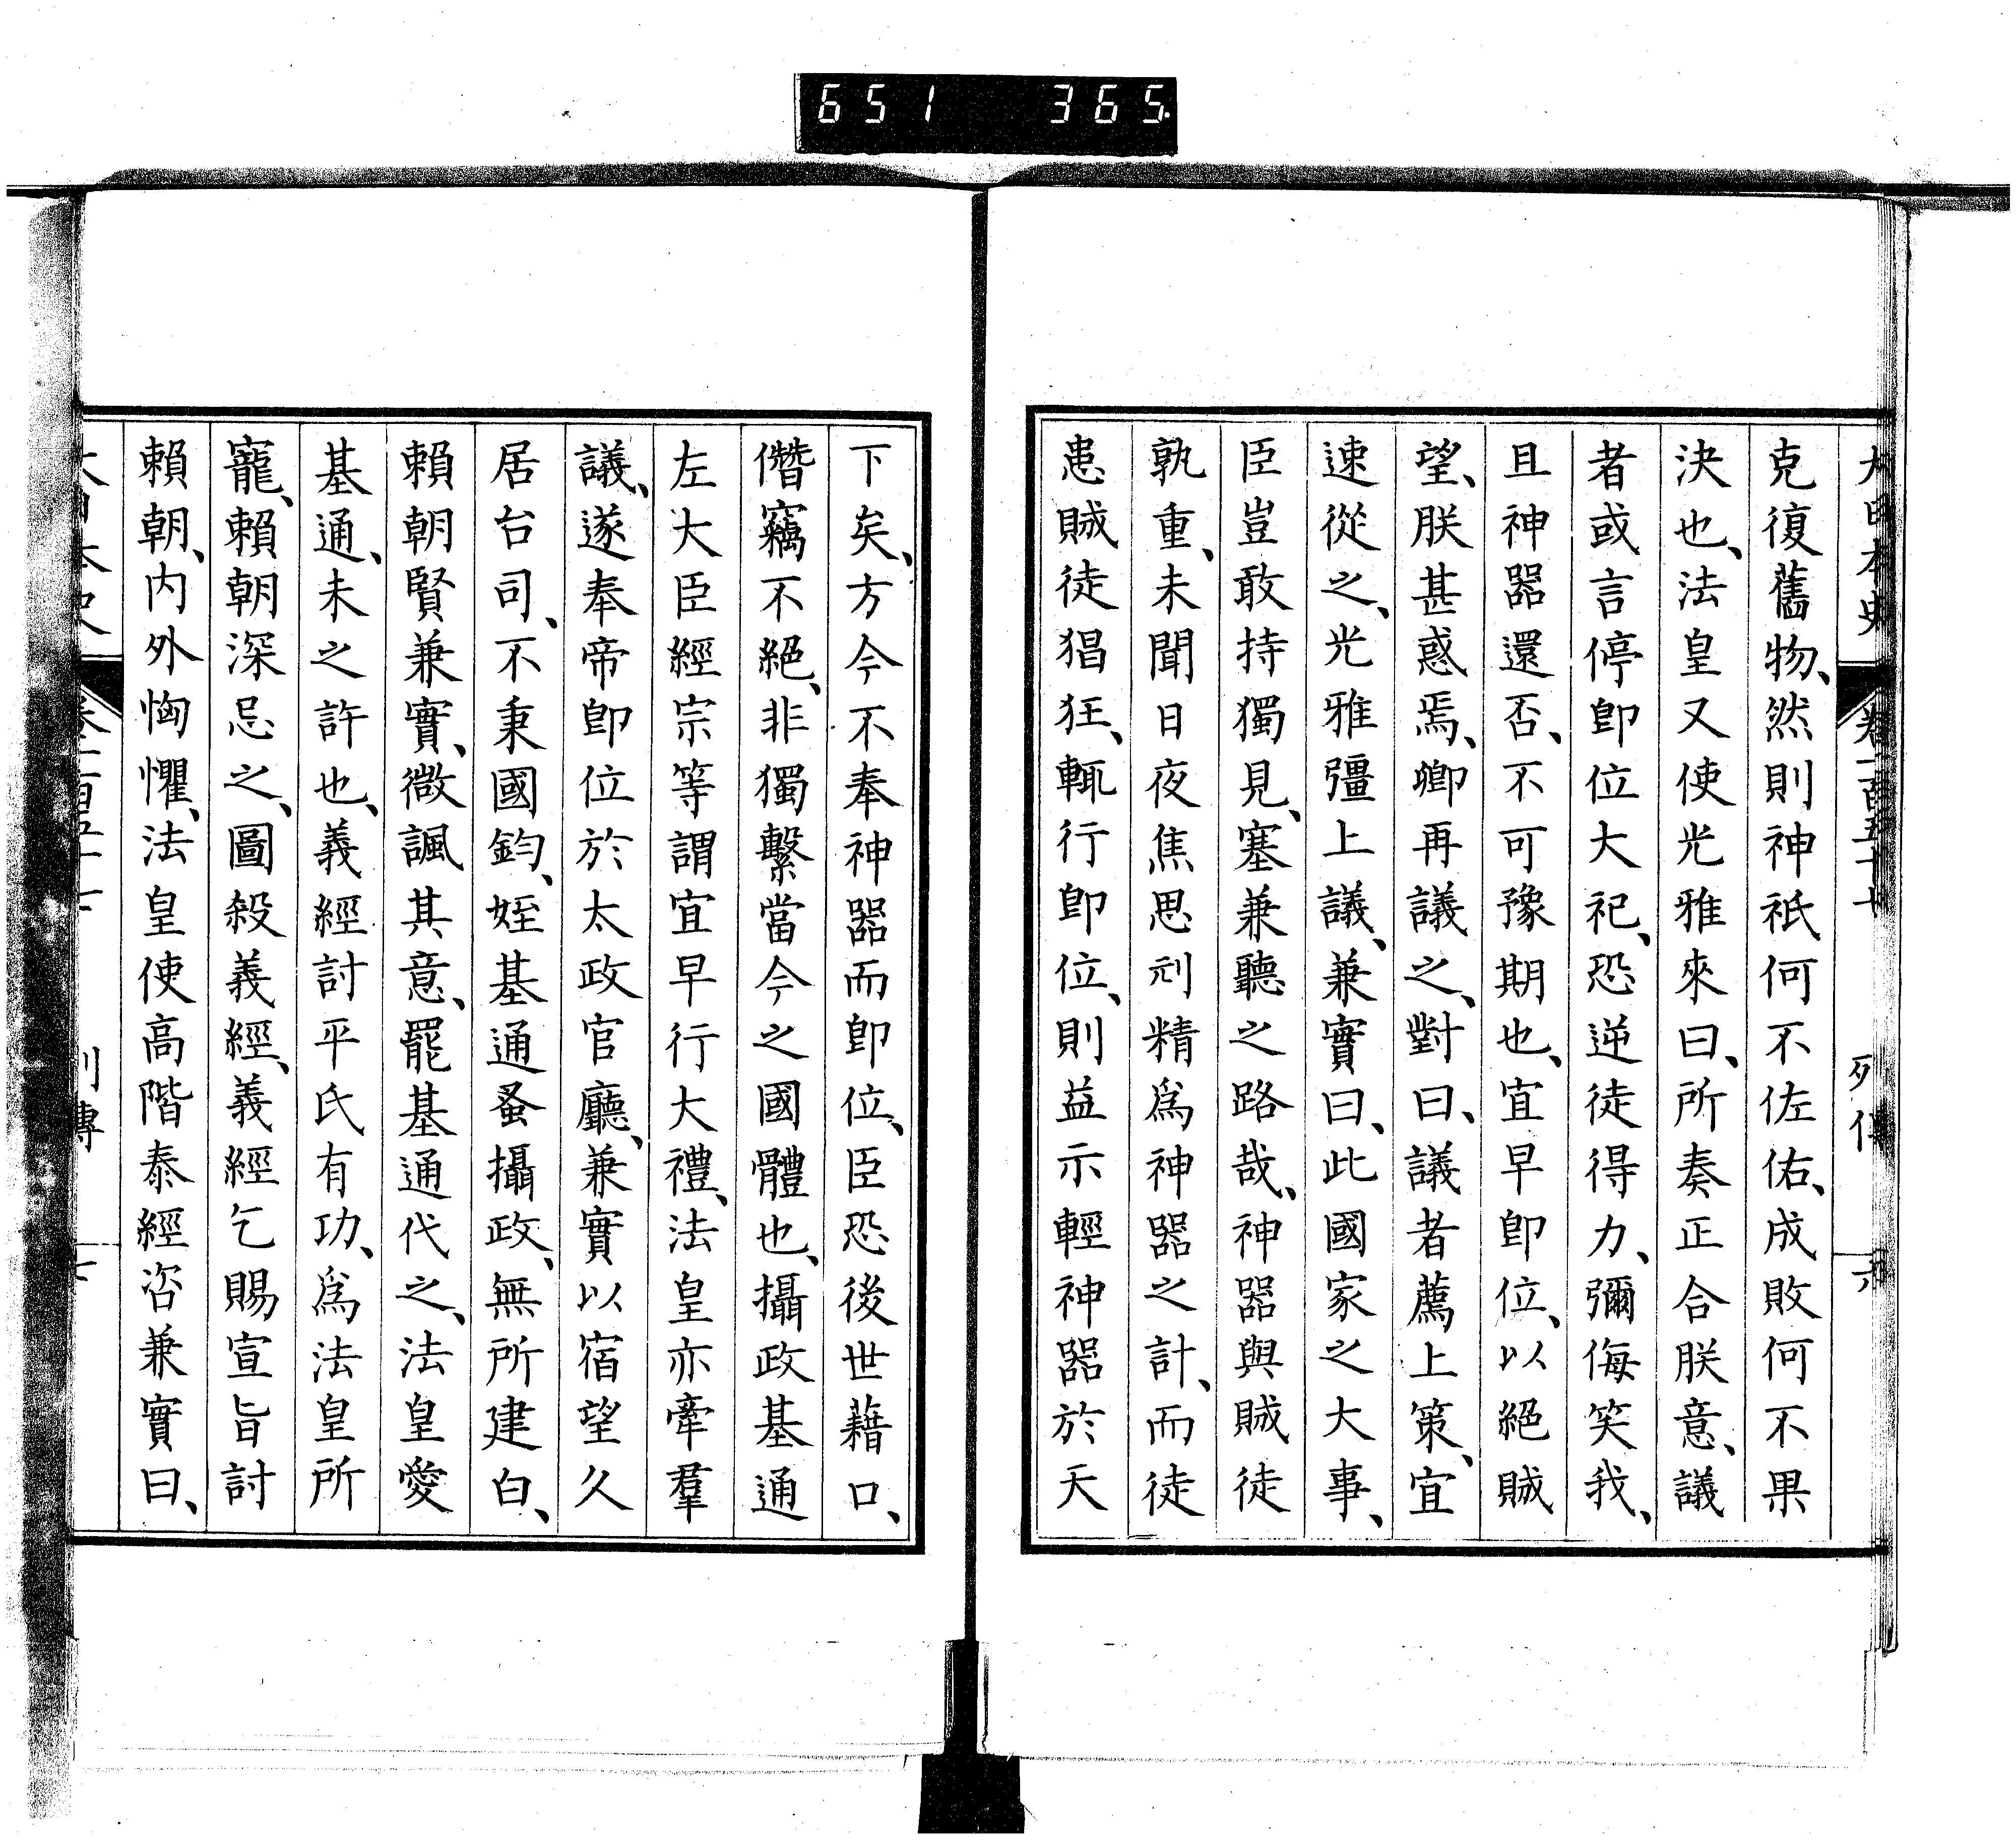 651 365
大日本史 卷一百五十七 列傳 六
克復舊物、然則神祇何不佐佑、成敗何不果
決也、法皇又使光雅來曰、所奏正合朕意、議
者或言停卽位大祀、恐逆徒得力、彌侮笑我、
且神器還否、不可豫期也、宜早卽位、以絕賊
望、朕甚惑焉、卿再議之、對曰、議者薦上策、宜
速從之、光雅彊上議、兼實曰、此國家之大事、
臣豈敢持獨見、塞兼聽之路哉、神器與賊徒
孰重、未聞日夜焦思刓精爲神器之計、而徒
患賊徒猖狂、輒行卽位、則益示輕神器於天
下矣、方今不奉神器而卽位、臣恐後世藉口、
僭竊不絕、非獨繫當今之國體也、攝政基通
左大臣經宗等謂宜早行大禮、法皇亦牽羣
議、遂奉帝卽位於太政官廳、兼實以宿望久
居台司、不秉國鈞、姪基通蚤攝政、無所建白、
賴朝賢兼實、微諷其意、罷基通代之、法皇愛
基通、未之許也、義經討平氏有功、爲法皇所
寵、賴朝深忌之、圖殺義經、義經乞賜宣旨討
賴朝、内外恟懼、法皇使高階泰經咨兼實曰、
大日本史 卷一百五十七 列傳 七